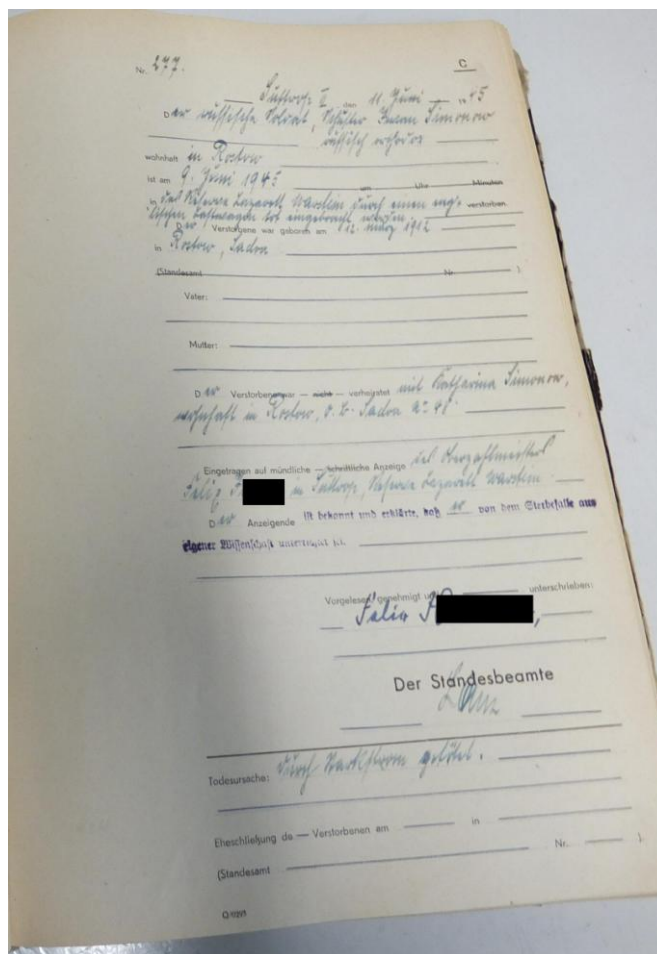 C
Nr. 277.
Suttrop I am 11. Juni 1945
Der russische Soldat, Schuster Iwan Simonow
russisch orthodox
wohnhaft in Rostow
ist am 9. Juni 1945 um Uhr Minuten
in das Reserve Lazarett Warstein durch einen eng-
lischen Lastwagen tot eingebracht worden verstorben.
Der Verstorbene war geboren am 12. März 1912
in Rostow, Sadra
(Standesamt Nr. ).
Vater:
Mutter:
Der Verstorbene war — nicht — verheiratet mit Katharina Simonow,
wohnhaft in Rostow, Sadra No 48
Eingetragen auf mündliche — schriftliche Anzeige des Oberzahlmeisters
Felix in Suttrop, Reserve Lazarett Warstein
Der Anzeigende ist bekannt und erklärte, daß er von dem Sterbefalle aus
eigener Wissenschaft unterrichtet sei.
Vorgelesen, genehmigt und unterschrieben:
Felix
Der Standesbeamte
Todesursache: durch Starkstrom getötet.
Eheschließung de — Verstorbenen am in
(Standesamt Nr. ).